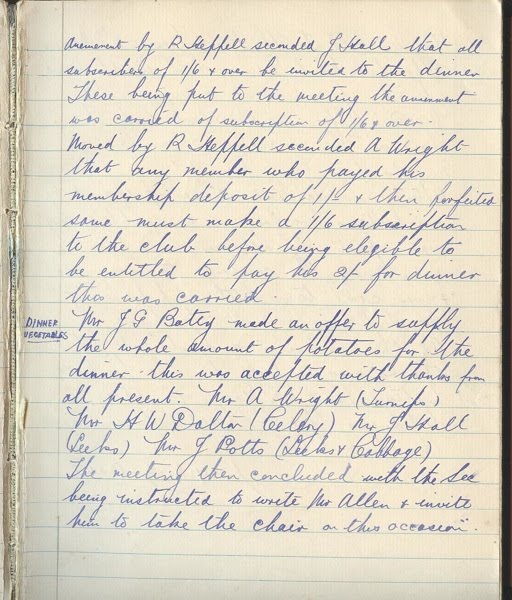 amement by R Heppell seconded J Hall that all
subscribers of 1/6 & over be invited to the dinner
These being put to the meeting the amement
was carried of subscription of 1/6 & over.
Moved by R Heppell seconded A Wright
that any member who payed his
membership deposit of 1/- & then forfeited
same must make a 1/6 subscription
to the club before being elegible to
be entitled to pay his 2/- for dinner
this was carried.
DINNER VEGETABLES
Mr J G Batey made an offer to supply
the whole amount of potatoes for the
dinner. this was accepted with thanks from
all present. Mr A Wright (Turnips)
Mr H W Dalton (Celery) Mr J Hall
(Leeks) Mr J Potts (Leeks & Cabbage)
The meeting then concluded with the Sec
being instructed to write Mr Allen & invite
him to take the chair on this occasion.